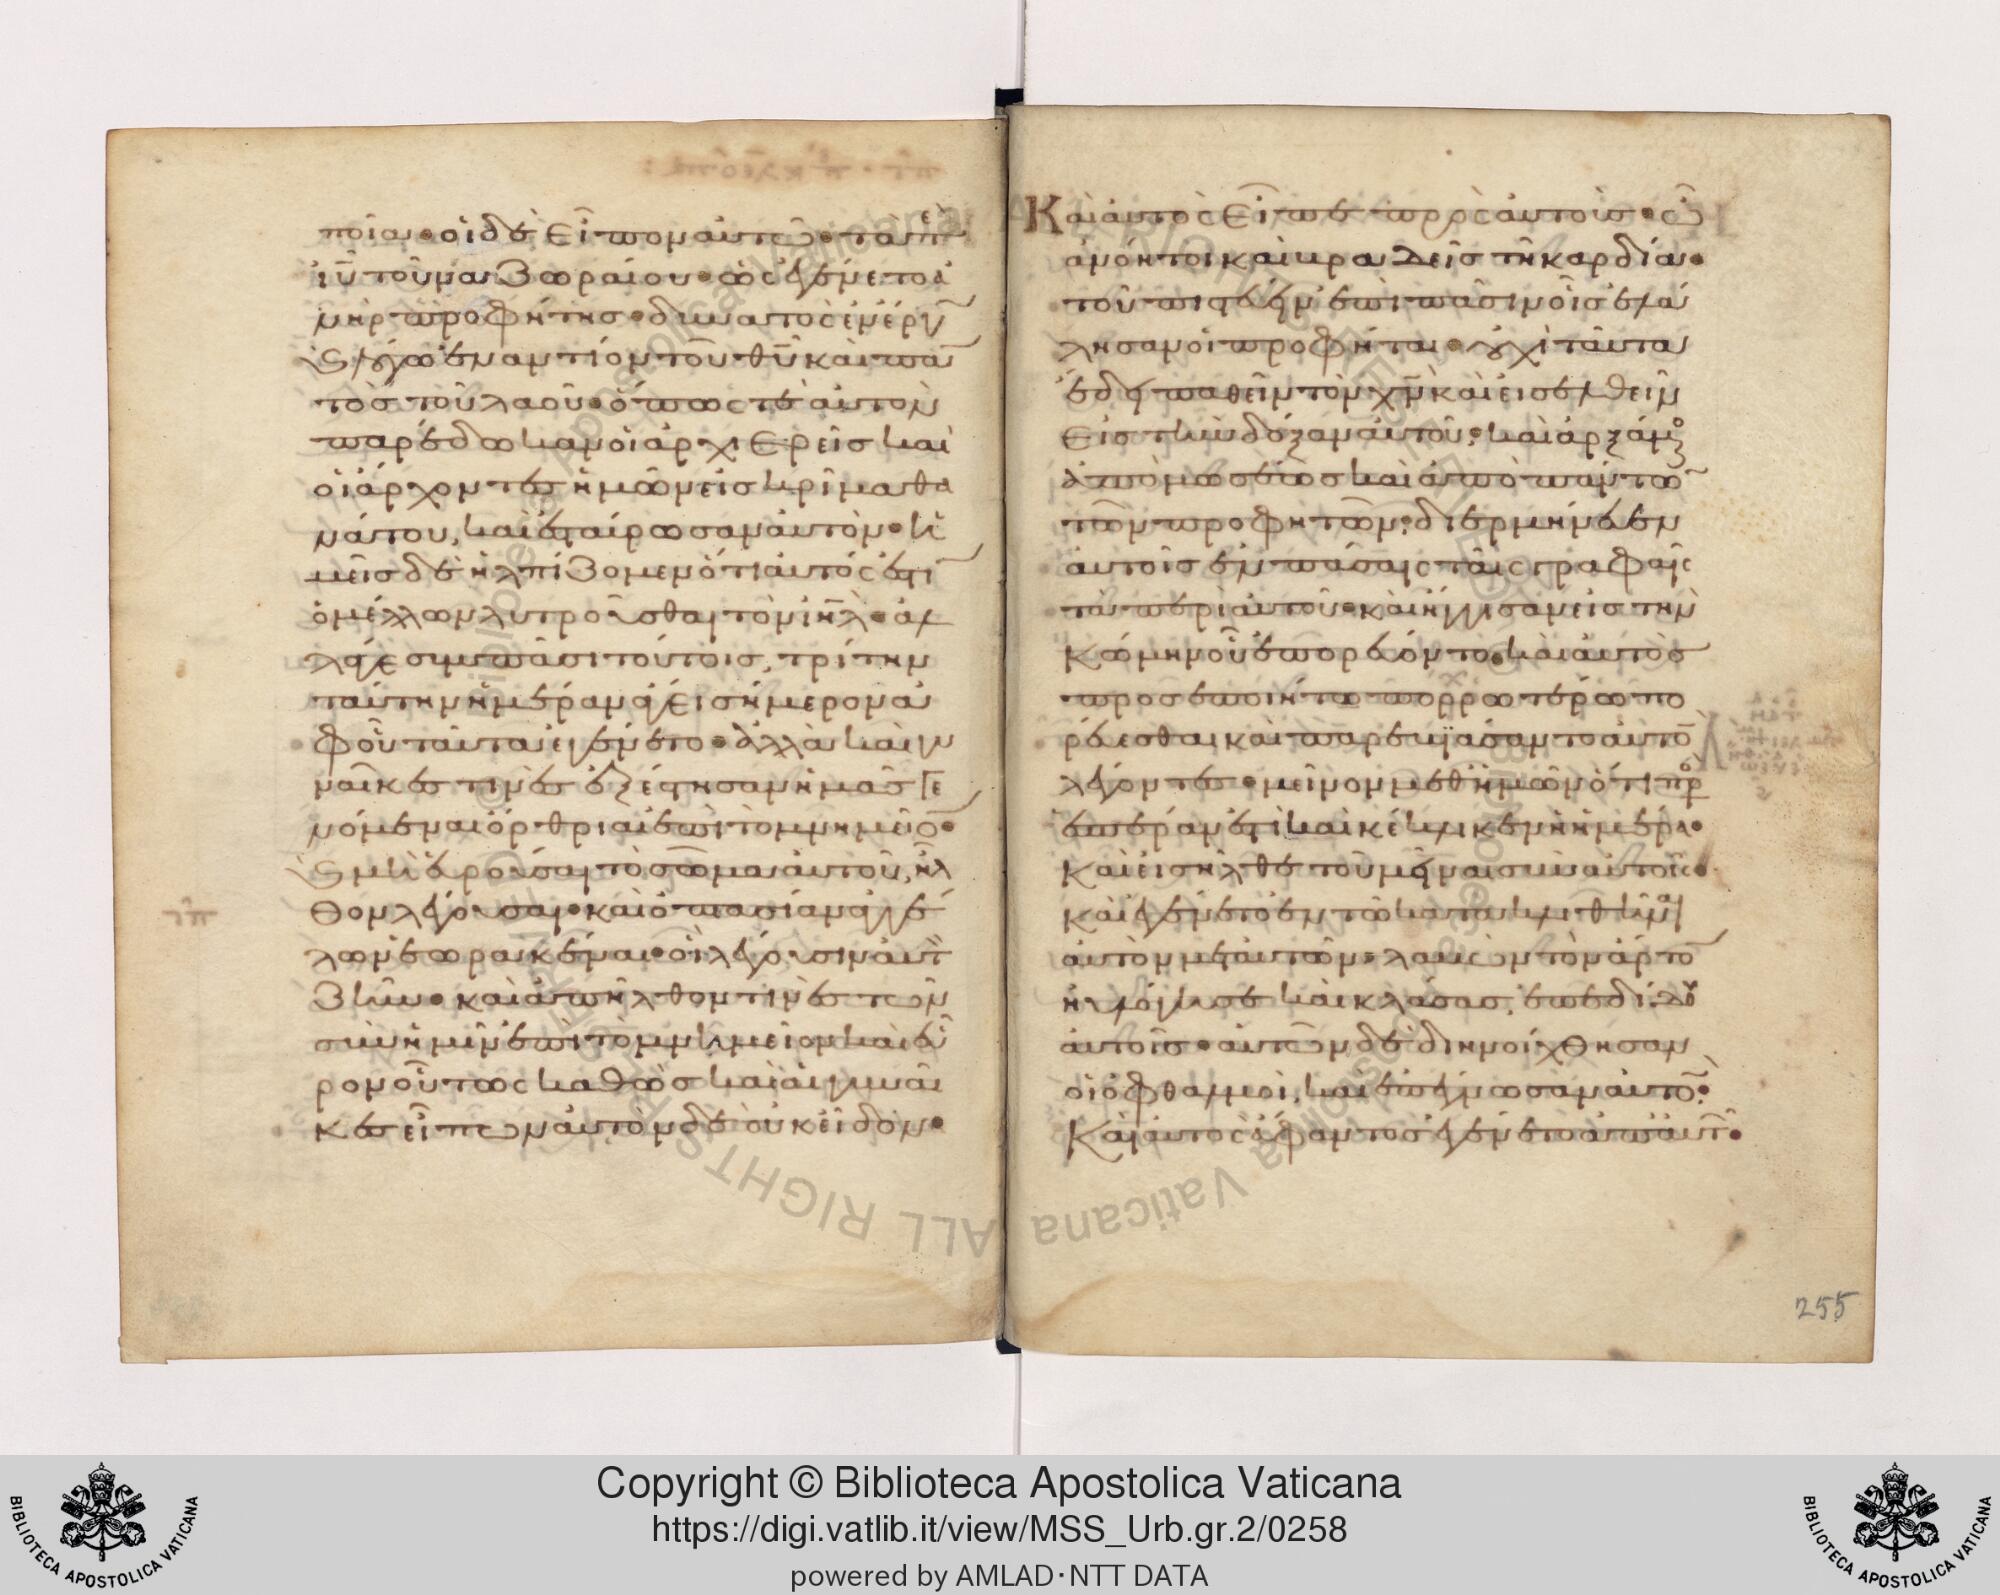 ποῖα· οἱ δὲ εἶπον αὐτῷ· τὰ πε
ιυ τοῦ ναζωραίου· ὡς ἐγένετο ἀ
νὴρ προφήτης· δυνατὸς ἐν ἔργ
ϗ λόγω ἐναντίον τοῦ θυ καὶ παν
τὸς τοῦ λαοῦ· ὅπως τὲ αὐτὸν
παρέδωκαν οἱ ἀρχιερεῖς καὶ
οἱ ἄρχοντες ἡμῶν εἰς κρῖμα θα
νάτου, καὶ ἐσταύρωσαν αὐτὸν· ἡ
μεῖς δὲ ἠλπίζομεν ὅτι αὐτός ἐστι
ὁ μέλλων λυτροῦσθαι τὸν ιηλ· ἀλ
λάγε σὺν πᾶσι τούτοις, τρίτην
ταύτην ἡμέραν ἄγει σήμερον ἀ
φοῦ ταῦτα ἐγένετο· ἀλλὰ καὶ γυ
ναῖκες τινὲς ἐξέστησαν ἡμᾶς γε
νόμεναι ὄρθριαι ἐπὶ τὸ μνημεῖο·
ϗ μὴ εὑροῦσαι τὸ σῶμα αὐτοῦ, ἦλ
θον λέγουσαι· καὶ ὀπτασίαν ἀγγέ
λων ἑωρακέναι· οἳ λέγουσιν αὐτὸ
ζῆν· καὶ ἀπῆλθον τινὲς τῶν
σὺν ἡμῖν ἐπὶ τὸ μνημεῖον καὶ εὗ
ρον οὕτως καθὼς καὶ αἱ γυναῖ
κες εἶπον αὐτὸν δὲ οὐκ εἶδον·
Καὶ αὐτὸς εἶπε πρὸς αὐτούς· ὦ
ἀνόητοι καὶ βραδεῖς τῆ καρδία·
τοῦ πιστεύειν ἐπὶ πᾶσιν οἷς ἐλά
λησαν οἱ προφῆται· οὐχὶ ταῦτα
ἔδει παθεῖν τὸν χν καὶ εἰσελθεῖν
εἰς τὴν δόξαν αὐτοῦ; καὶ ἀρξάμο
ἀπὸ μωσέως καὶ ἀπὸ πάντω
τῶν προφητῶν· διερμήνευεν
αὐτοῖς ἐν πάσαις ταῖς γραφαῖς
τὰ περὶ αὐτοῦ· καὶ ἤγγισαν εἰς τὴν
κώμην οὗ ἐπορεύοντο· καὶ αὐτὸς
προσεποιεῖτο πορρωτέρω πο
ρεύεσθαι καὶ παρεβιάσαντο αὐτὸ
λέγοντες· μεῖνον μεθ ἡμῶν ὅτι πρ
ἑσπέραν ἐστὶ καὶ κέκλικεν ἡ ἡμέρα·
Καὶ εἰσῆλθε τοῦ μεῖναι σὺν αὐτοῖς·
καὶ ἐγένετο ἐν τῶ κατακλιθῆναι
αὐτὸν μετ αὐτῶν· λαβὼν τὸν ἄρτο
ηὐλόγησε καὶ κλάσας, ἐπεδίδου
αὐτοῖς· αὐτῶν δὲ διηνοίχθησαν
οἱ ὀφθαλμοὶ, καὶ ἐπέγνωσαν αὐτὸ·
Καὶ αὐτὸς ἄφαντος ἐγένετο ἀπ αὐτῶ·
255
Copyright © Biblioteca Apostolica Vaticana
https://digi.vatlib.it/view/MSS_Urb.gr.2/0258
powered by AMLAD·NTT DATA
BIBLIOTECA APOSTOLICA VATICANA
BIBLIOTECA APOSTOLICA VATICANA